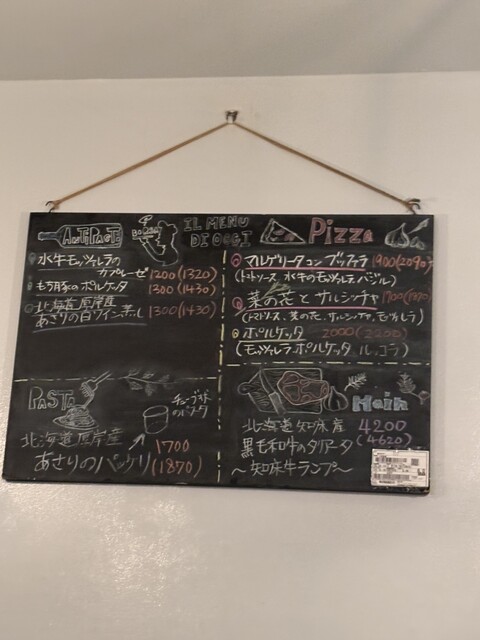 AnTiPaCTi
IL MENU
DI OGGI
水牛モッツァレラの
カプレーゼ 1200 (1320)
もち豚のポルケッタ 1300 (1430)
北海道厚岸産
あさりの白ワイン蒸し 1300 (1430)
PASTA
チューブ状
のパスタ
北海道厚岸産
あさりのパッケリ
1700
(1870)
Pizza
マルゲリータコンブッファラ 1900 (2090)
(トマトソース 水牛のモッツァレラ バジル)
菜の花とサルシッチャ
(トマトソース、菜の花、サルシッチャ、モッツァレラ)
ポルケッタ 2000 (2200)
(モッツァレラ、ポルケッタ ルッコラ)
Main
北海道知床産 4200
黒毛和牛のタリアータ (4620)
〜知床牛ランプ〜